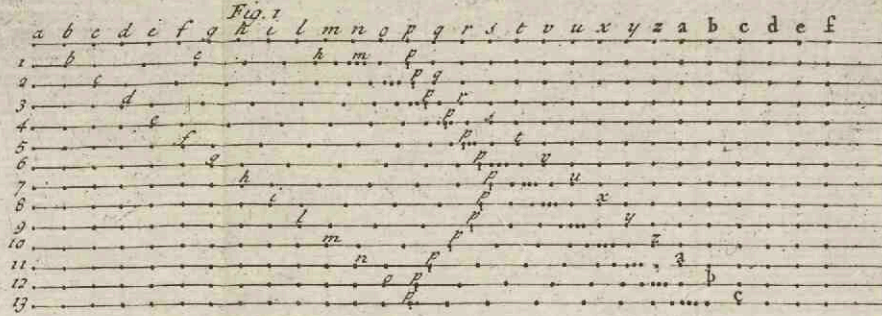 Fig. 1
a b c d e f g h i l m n o p q r s t v u x y z a b c d e f
1 b e h m p
2 c p q
3 d p r
4 e p s
5 f p t
6 g p v
7 h p u
8 i p x
9 l p y
10 m p z
11 n p a
12 o p b
13 p c